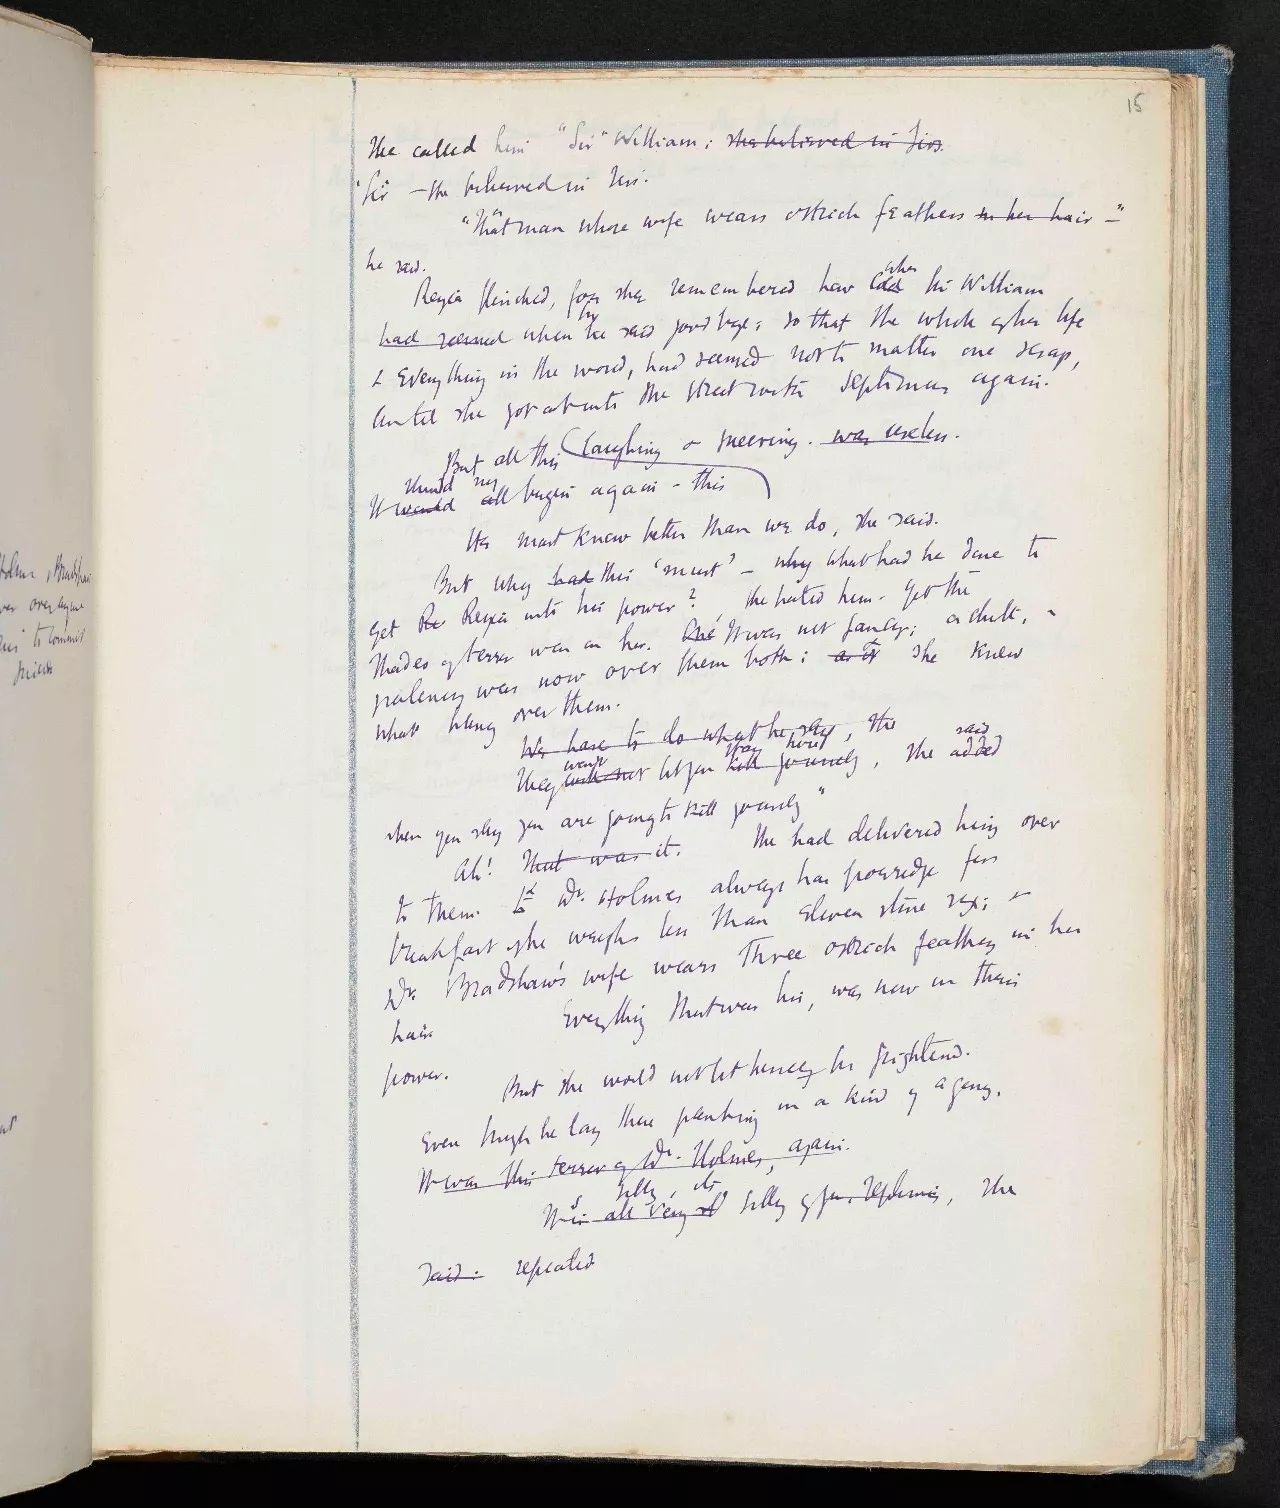 15
She called him "Sir" William; she believed in Sirs
"Sir" - she believed in Sirs.
"That man whose wife wears ostrich feathers in her hair -"
he said.
when
Rezia flinched, for she remembered how cold Sir William
had seemed when he said goodbye; so that the whole of her life
& everything in the world, had seemed not to matter one scrap,
until she got out into the street with Septimus again.
But all this laughing & sneering. was useless.
should
It would all begin again - this
He must know better than we do, she said.
But why had this 'must' - why what had he done to
get Re Rezia into his power? She hated him. Yet the
shades of terror was on her. It was not fancy; a chill,
was now over them both; as if she knew
what hung over them.
We have to do what he says, she
won't stay here said
They will not let you kill yourself, she added
when you say you are going to kill yourself"
Ah! That was it. She had delivered him over
to them. & to Dr. Holmes always has porridge for
breakfast if he weighs less than eleven stone six; &
Dr. Bradshaw's wife wears three ostrich feathers in her
hair. Everything that was his, was now in their
power.
But she would not let herself be frightened.
Even though he lay there panting in a kind of agony.
It was this terror of Dr. Holmes, again.
silly, its
It is all very silly of you, Septimus, she
said. repeated
Holmes, Bradshaw
over
to commit
suicide